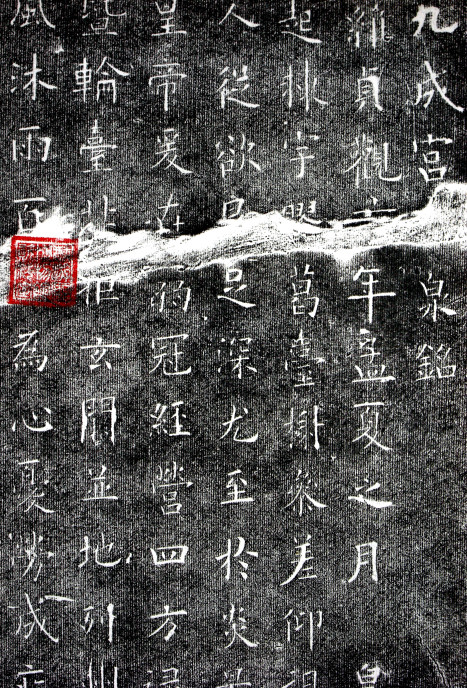 九成宮泉銘
維貞觀年孟夏之月
起棟宇葛臺榭參差仰
人從欲足深尤至於炎
皇帝爰在冠經營四方
暨輪臺玄闕並地列
風沐雨百為心憂勞成